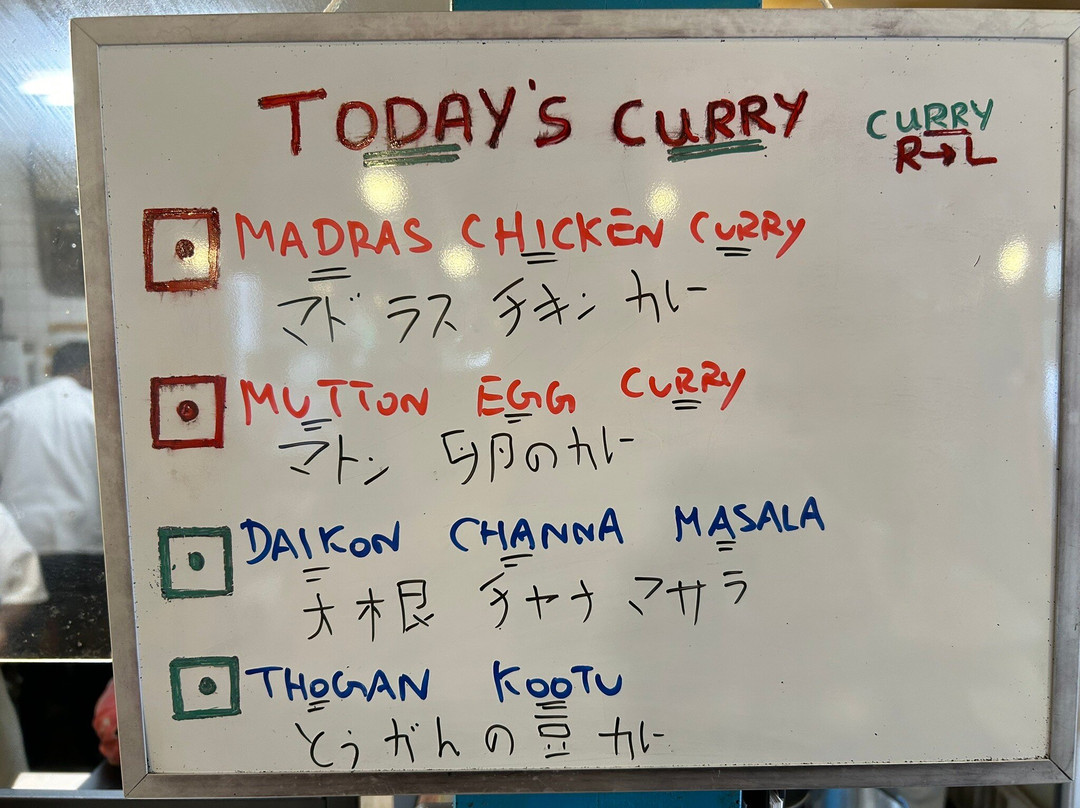 TODAY'S CURRY
CURRY
R→L
MADRAS CHICKEN CURRY
マドラス チキン カレー
MUTTON EGG CURRY
マトン 卵のカレー
DAIKON CHANNA MASALA
大根 チャナ マサラ
THOGAN KOOTU
とうがんの豆カレー